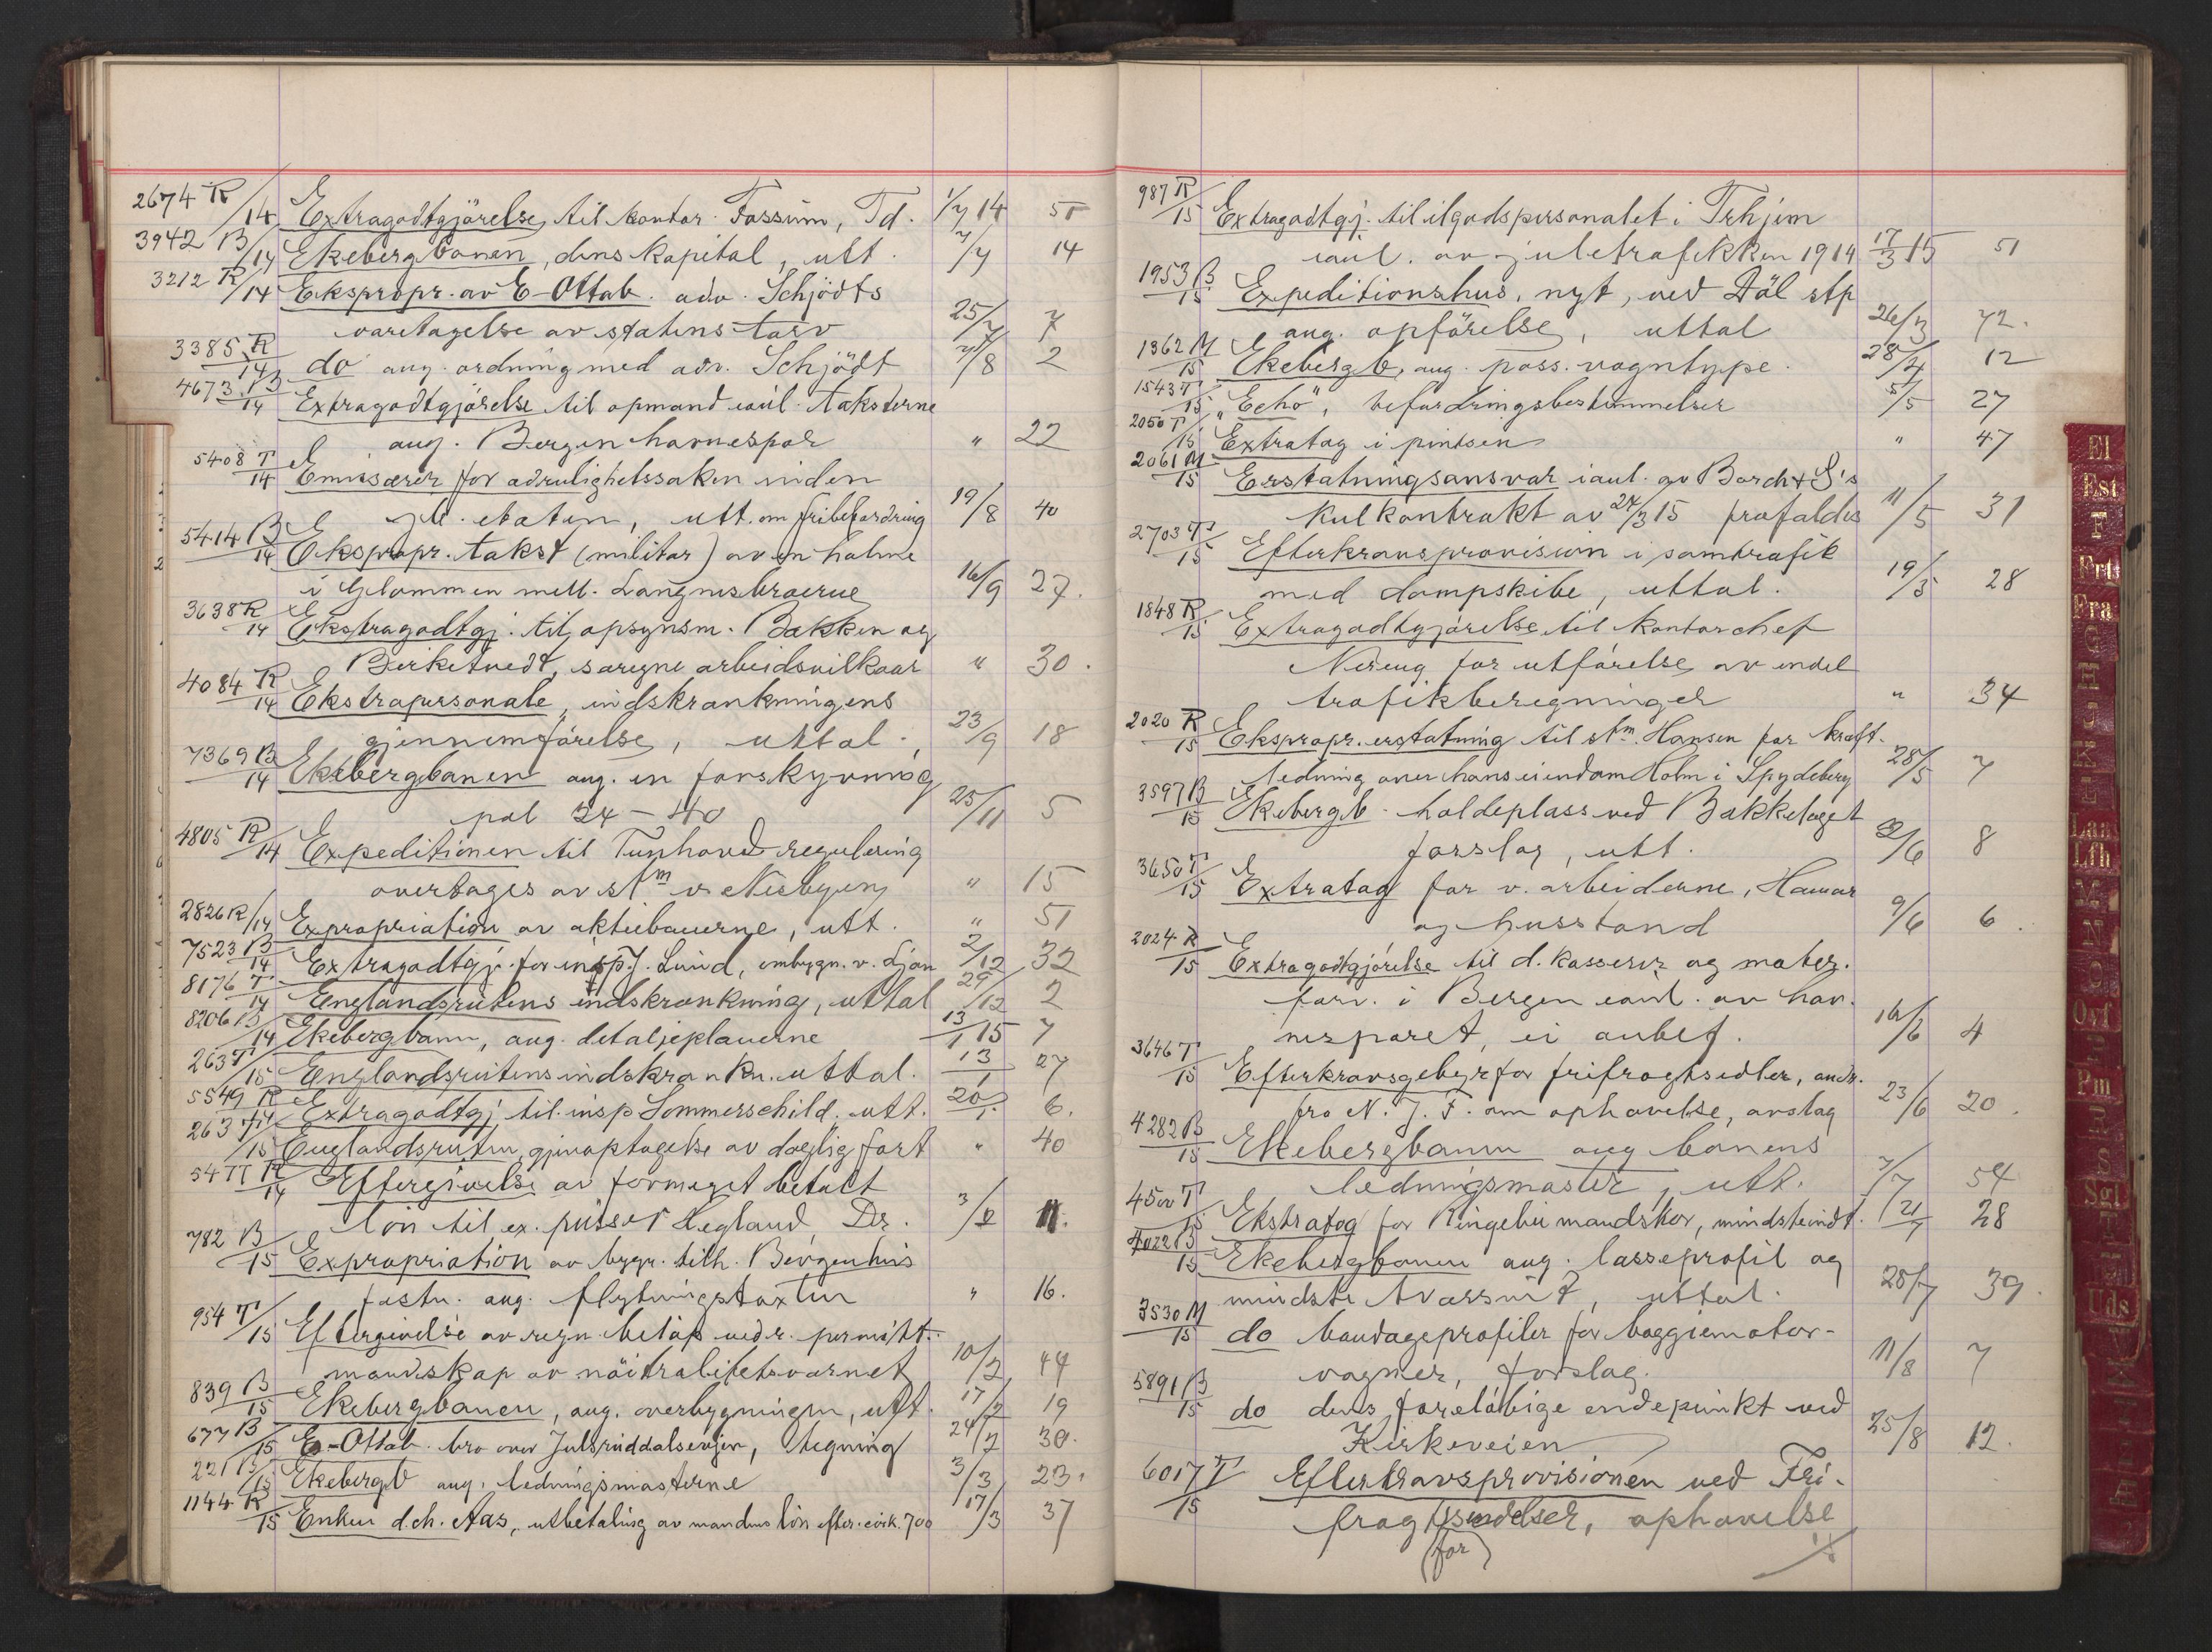 2674 R/14 Extragodtgjörelse til kontor. Fossum, Td. 1/7 14 51
3942 B/14 Ekebergbanen, dens kapital, utt. 7/7 14
3212 R/14 Ekspropr. av E-Ottab. adv. Schjödts
varetagelse av statens tarv 25/7 7
3385 R/14 do ang. ordning med adv. Schjödt 7/8 2
4673 B/14 Extragodtgjörelse til opmand iaul. taksterne
ang. Bergen havnespor " 22
5408 T/14 Emisærer for ædruelighetssaken inden
etaten, utt. om fribefordring 19/8 40
5414 B/14 Ekspropr. takst (militær) av en holme
i Glommen mell. Langnesbroerne 16/9 27.
3638 R/14 Ekstragodtgj. til opsynsm. Bakken og
Birketvedt, særegne arbeidsvilkaar " 30.
4084 R/14 Ekstrapersonale, indskrænkningens
gjennemförelse, uttal. 23/9 18
7369 B/14 Ekebergbanen ang. en forskyvning
pæl 34 - 40 25/11 5
4805 R/14 Expeditionen til Tunhovd regulering
overtages av stm v. Nesbyen " 15
2826 R/14 Expropriation av aktiebanerne, utt. " 51
7523 B/14 Extragodtgj. for insp. J. Lund, ombygn. v. Ljan 2/12 32
8176 T/14 Englandsrutens indskrænkning, uttal 29/12 2
8206 B/14 Ekebergbanen, ang. detaljeplanerne 13/1 15 7
263 T/15 Englandsrutens indskrænkn. uttal. 13/1 27
5549 R/14 Extragodtgj. til insp Sommerschild. utt. 20/1. 6.
263 T/15 Englandsruten, gjenoptagelse av daglig fart " 40
5477 R/14 Eftergivelse av formeget betalt
lön til ex. pusser Hegland, Dr. 3/2 11.
782 B/15 Expropriation av bygn. tilh. Bergenhus
fæstn. ang. flytningstaxten " 16.
954 T/15 Eftergivelse av regn. belöp vedr. permitt.
mandskap av nöitralitetsvernet 10/2 44
839 B/15 Ekebergbanen, ang. overbygningen, utt. 17/2 19
677 B/15 E-Ottab. bro over Julsruddalsveien, tegning 24/2 30.
221 B/15 Ekebergb ang. ledningsmasterne 3/3 23.
1144 R/15 Enken d.ch. Aas, utbetaling av mandens lön efter. 700 17/3 37
987 R/15 Extragodtgj. til ilgodspersonalet i Trhjem
iaul. av juletrafikken 1914 17/3 15 51
1953 B/15 Expeditionshus, nyt, ved Döl stp
ang. opförelse, uttal 26/3 72.
1362 M/15 Ekebergb, ang. pass. vogntype. 28/4 12
1543 T/15 "Echo", befordringsbestemmelser 5/5 27
2056 T/15 Extratog i pintsen " 47
2061 M/15 Erstatningsansvar iaul. av Borch & S's
Kulkontrakt av 24/3 15 frafaldes 11/5 31
2703 T/15 Efterkravsprovision i samtrafik
med dampskibe, uttal. 19/5 28
1848 R/15 Extragodtgjörelse til kontorchef
for utförelse av endel
trafikberegninger " 34
2020 R/15 Ekspropr. erstatning til stm. Hansen for kraft-
ledning over hans eiendom Holm i Spydeberg 28/5 7
3597 B/15 Ekebergb - holdeplass ved Bækkelaget
forslag, utt. /6 8
3650 T/15 Extratog for v. arbeiderne, Hamar
og husstand 9/6 6.
2024 R/15 Extragodtgjörelse til d. kasserer og mater.
forv. i Bergen iaul. av hav-
nesporet, ei anbef. 16/6 4
3646 T/15 Efterkravsgebyr for frifragtsedler, andr.
fra N. J. F. om ophævelse, avslag 23/6 20.
4282 B/15 Ekebergbanen ang banens
ledningsmaster, utt. 7/7 54
4500 T/15 Ekstratog for Ringebu mandskor, mindsteindt. 21/7 28
4022 B/15 Ekebergbanen ang. lasseprofil og
mindste tværsnit, uttal. 28/7 39.
3530 M/15 do bandageprofiler for boggiemotor-
vogner, forslag. 11/8 7
5891 B/15 do dens foreløbige endepunkt ved
Kirkeveien 25/8 12.
6017 T/15 Efterkravsprovisionen ved Fri-
fragtsendelser, ophævelse
(for)
El
Est
F
Frt
Fra
G
H
J
K
L
Lan
Lfh
M
N
O
Osf
P
Pm
R
S
Sgl
T
U
Uds
V